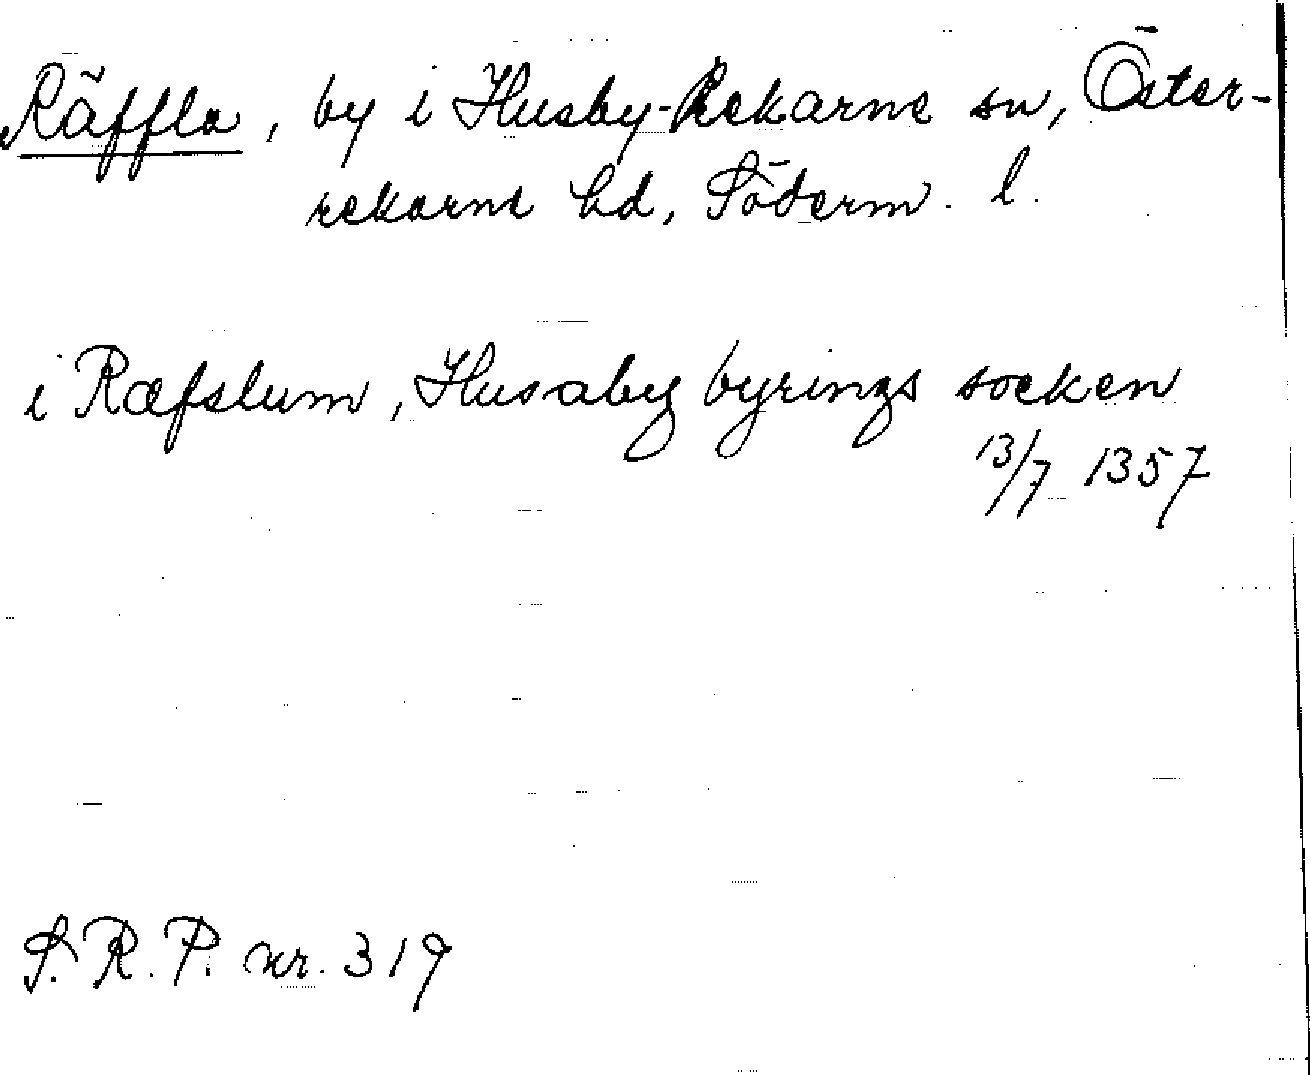 Räffla, by i Husby-Rekarne sn, Öster-
rekarne hd, Söderm. l.
i Ræfslum, Husaby byrings socken
13/7 1357
S.R.P. nr. 319